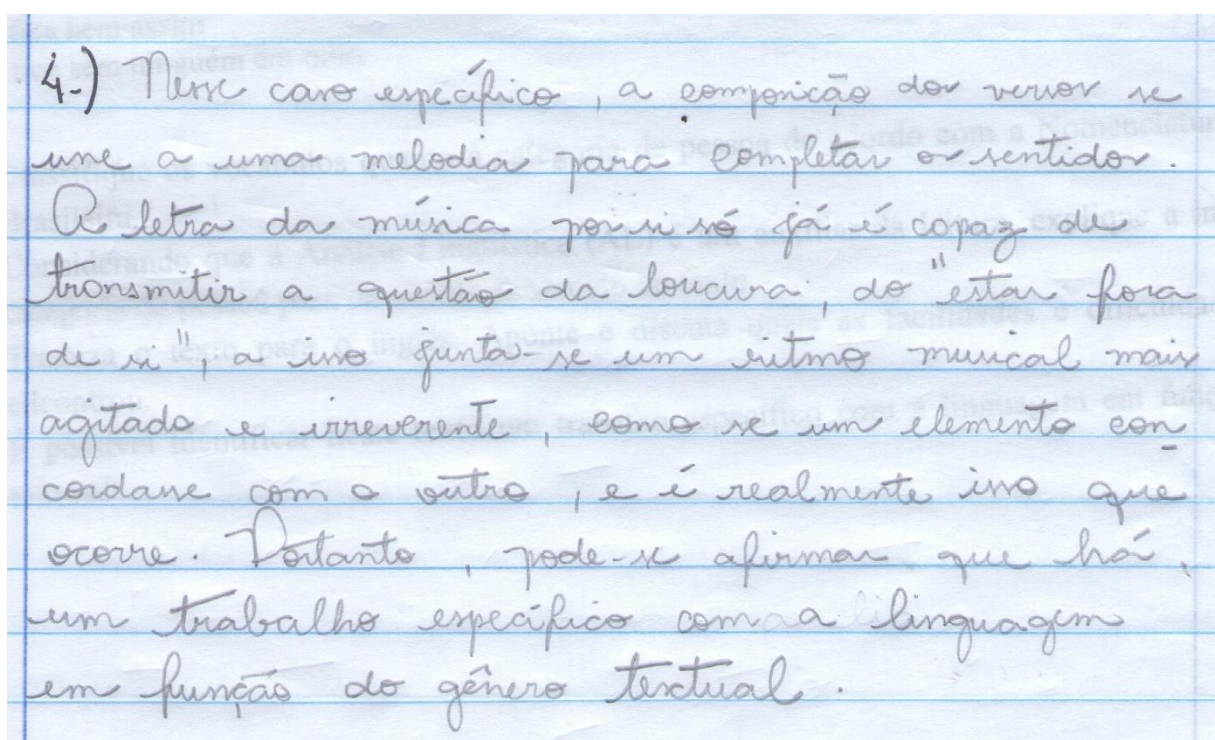 4-) Nesse caso específico, a composição dos versos se
une a uma melodia para completar os sentidos.
A letra da música por si só já é capaz de
transmitir a questão da loucura, do "estar fora
de si", a isso junta-se um ritmo musical mais
agitado e irreverente, como se um elemento con
cordasse com o outro, e é realmente isso que
ocorre. Portanto, pode-se afirmar que há,
um trabalho específico com a linguagem
em função do gênero textual.